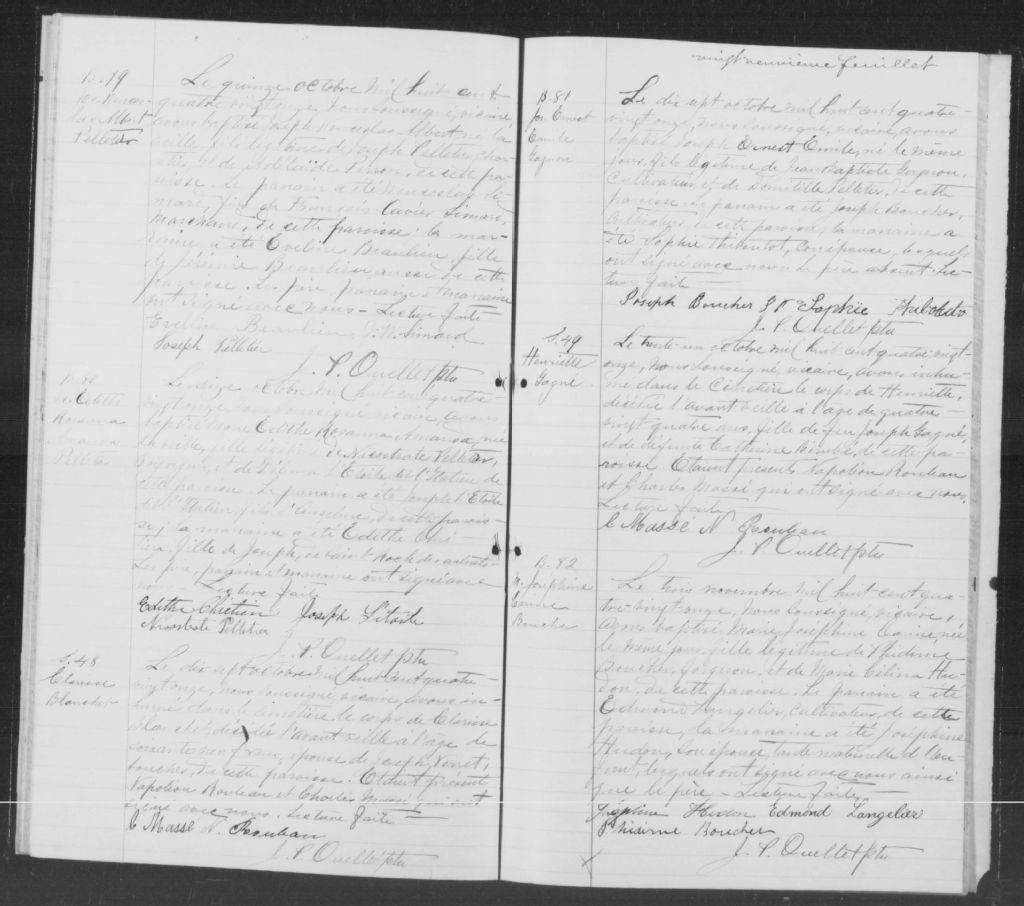 B. 79
Jos. Wences-
las Albert
Pelletier
Le quinze octobre mil huit cent
quatre-vingt-onze, nous soussigné, vicaire,
avons baptisé Joseph Wenceslas Albert né la
veille, fils légitime de Joseph Pelletier, char-
et de Adélaïde Peron, de cette pa-
roisse. Le parrain a été Wenceslas Si-
mard, fils de François Xavier Simard,
marchand, de cette paroisse; la mar-
raine a été Eveline Beaulieu, fille
de Jérémie Beaulieu aussi de cette
paroisse. Les père, parrain et marraine
ont signé avec nous - Lecture faite
Eveline Beaulieu, J. W. Simard
Joseph Pelletier
J. P. Ouellet ptre
B. 80
M. Edithe
Rosanna
Amanda
Pelletier
Le seize octobre mil huit cent quatre-
vingt-onze, nous soussigné, vicaire, avons
baptisé Marie Edithe Rosanna Amanda, née
la veille, fille légitime de Nicostrate Pelletier,
voyageur, et de L'Etoile de l'Italien de
cette paroisse. Le parrain a été Joseph L'Etoile
dit l'Italien, fils d'Anselme, de cette parois-
se; la marraine a été Edithe Chré-
tien, fille de Joseph, de Saint Roch des Aulnets-
Les père, parrain et marraine ont signé avec
nous. Lecture faite
Edithe Chrétien Joseph L'étoile
Nicostrate Pelletier
J. P. Ouellet ptre
S. 48
Clarisse
Blanchet
Le dix-sept octobre mil huit cent quatre-
vingt-onze, nous soussigné, vicaire, avons in-
humé dans le cimetière le corps de Clarisse
Blanchet, décédée l'avant-veille à l'âge de
soixante-neuf ans, épouse de Joseph
de cette paroisse. Etaient présents
Napoléon Rouleau et Charles Massé qui ont
signé avec nous. Lecture faite
C Massé N. Rouleau
J. P. Ouellet ptre
vingt neuvième feuillet
B. 81
Jos. Ernest
Emile
Gagnon
Le dix-sept octobre mil huit cent quatre-
vingt-onze, nous soussigné, vicaire, avons
baptisé Joseph Ernest Emile, né le même
jour, fils légitime de Jean Baptiste Gagnon,
cultivateur, et de Domitille Pelletier, de cette
paroisse. Le parrain a été Joseph Boucher,
cultivateur, de cette paroisse, la marraine a
été Sophie Thiboutot, son épouse, lesquels
ont signé avec nous. Le père absent. Lec-
ture faite
Joseph Boucher Sophie Thiboutot
J. P. Ouellet ptre
S. 49
Henriette
Gagné
Le trente-un octobre mil huit cent quatre-vingt-
onze, nous soussigné, vicaire, avons inhu-
mé dans le cimetière le corps de Henriette,
décédée l'avant-veille à l'âge de quatre-
vingt-quatre ans, fille de feu Joseph Gagné,
et de défunte Catherine de cette pa-
roisse. Etaient présents Napoléon Rouleau
et Charles Massé qui ont signé avec nous.
Lecture faite
C Massé N Rouleau
J. P. Ouellet ptre
B. 82
M. Josephine
Corinne
Boucher
Le trois novembre mil huit cent qua-
tre-vingt-onze, nous soussigné vicaire,
avons baptisé Marie Joséphine Corinne, née
le même jour, fille légitime de Phidime
Boucher, et de Marie Célina Hu-
don, de cette paroisse. Le parrain a été
Edmond Langelier, cultivateur, de cette
paroisse, la marraine a été Joséphine
Hudon, son épouse, tante maternelle de l'en-
fant, lesquels ont signé avec nous ainsi
que le père - Lecture faite
Joséphine Hudon Edmond Langelier
Phidime Boucher
J. P. Ouellet ptre